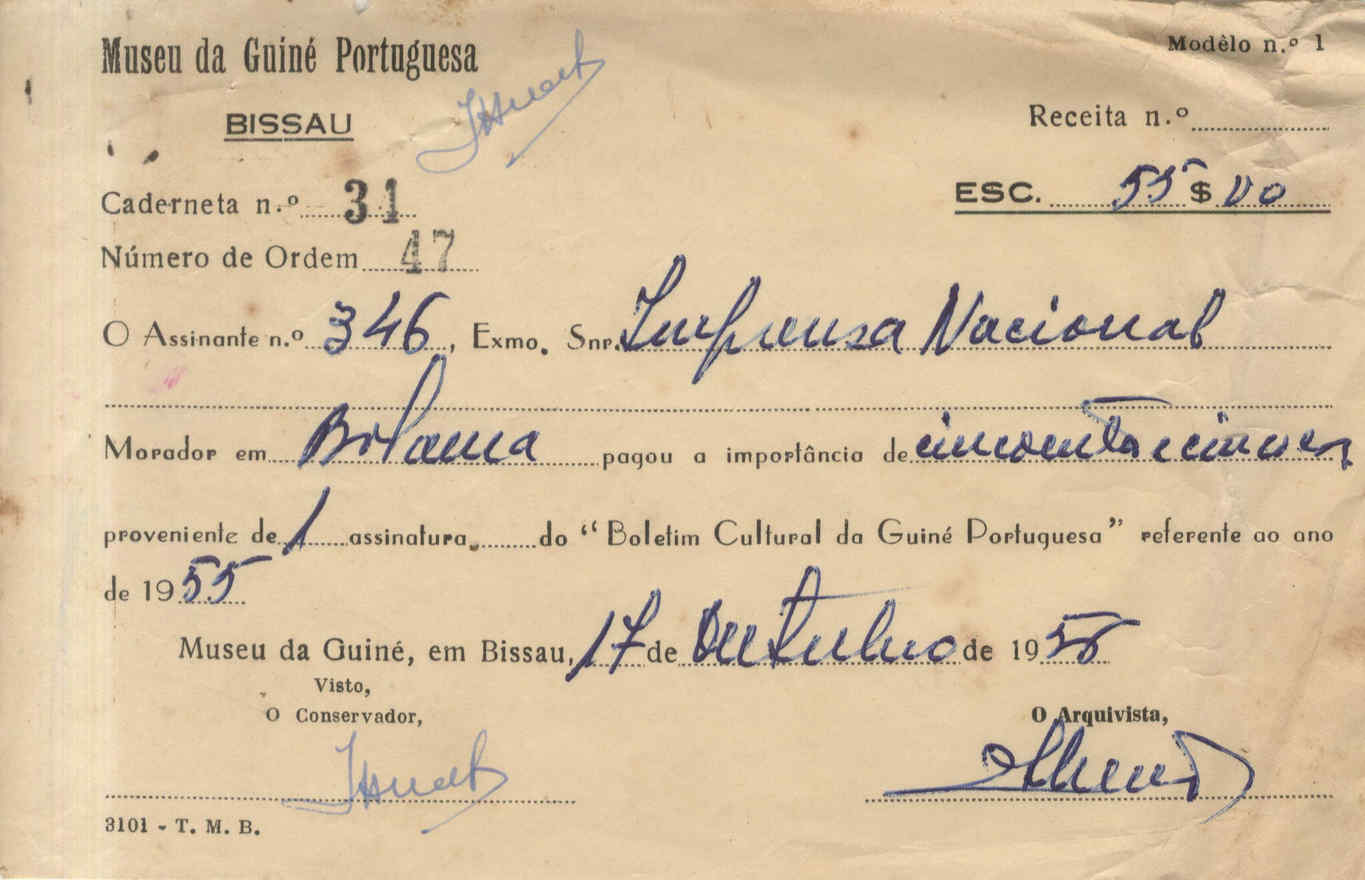 Museu da Guiné Portuguesa
Modêlo n.º 1
BISSAU
Receita n.º
Caderneta n.º 31
ESC. 55$00
Número de Ordem 47
O Assinante n.º 346, Exmo. Snr. Imprensa Nacional
Morador em Bolama pagou a importância de cincoenta e cinco
proveniente de 1 assinatura, do “Boletim Cultural da Guiné Portuguesa” referente ao ano
de 1955
Museu da Guiné, em Bissau, 17 de Outubro de 195
Visto,
O Conservador,
O Arquivista,
3101 - T. M. B.